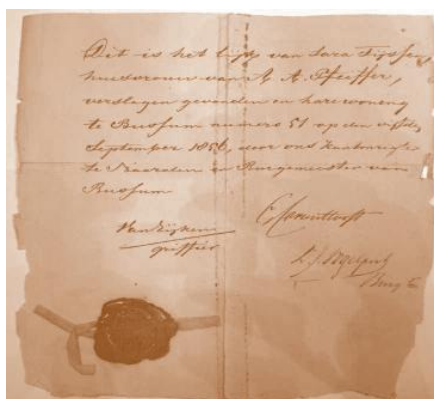 Dit is het lijk van Sara Tijssen
huisvrouw van G. A. Pfeiffer,
verslagen gevonden in hare woning
te Bussum numero 51 op den vijfde
September 1856, door ons Kantonregter
te Naarden en Burgemeester van
Bussum
griffier
Burg